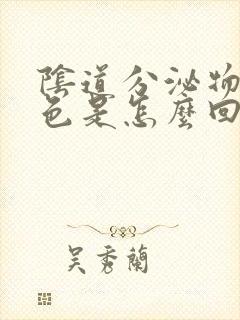 陰道分泌物
色是怎麼回
吳秀蘭